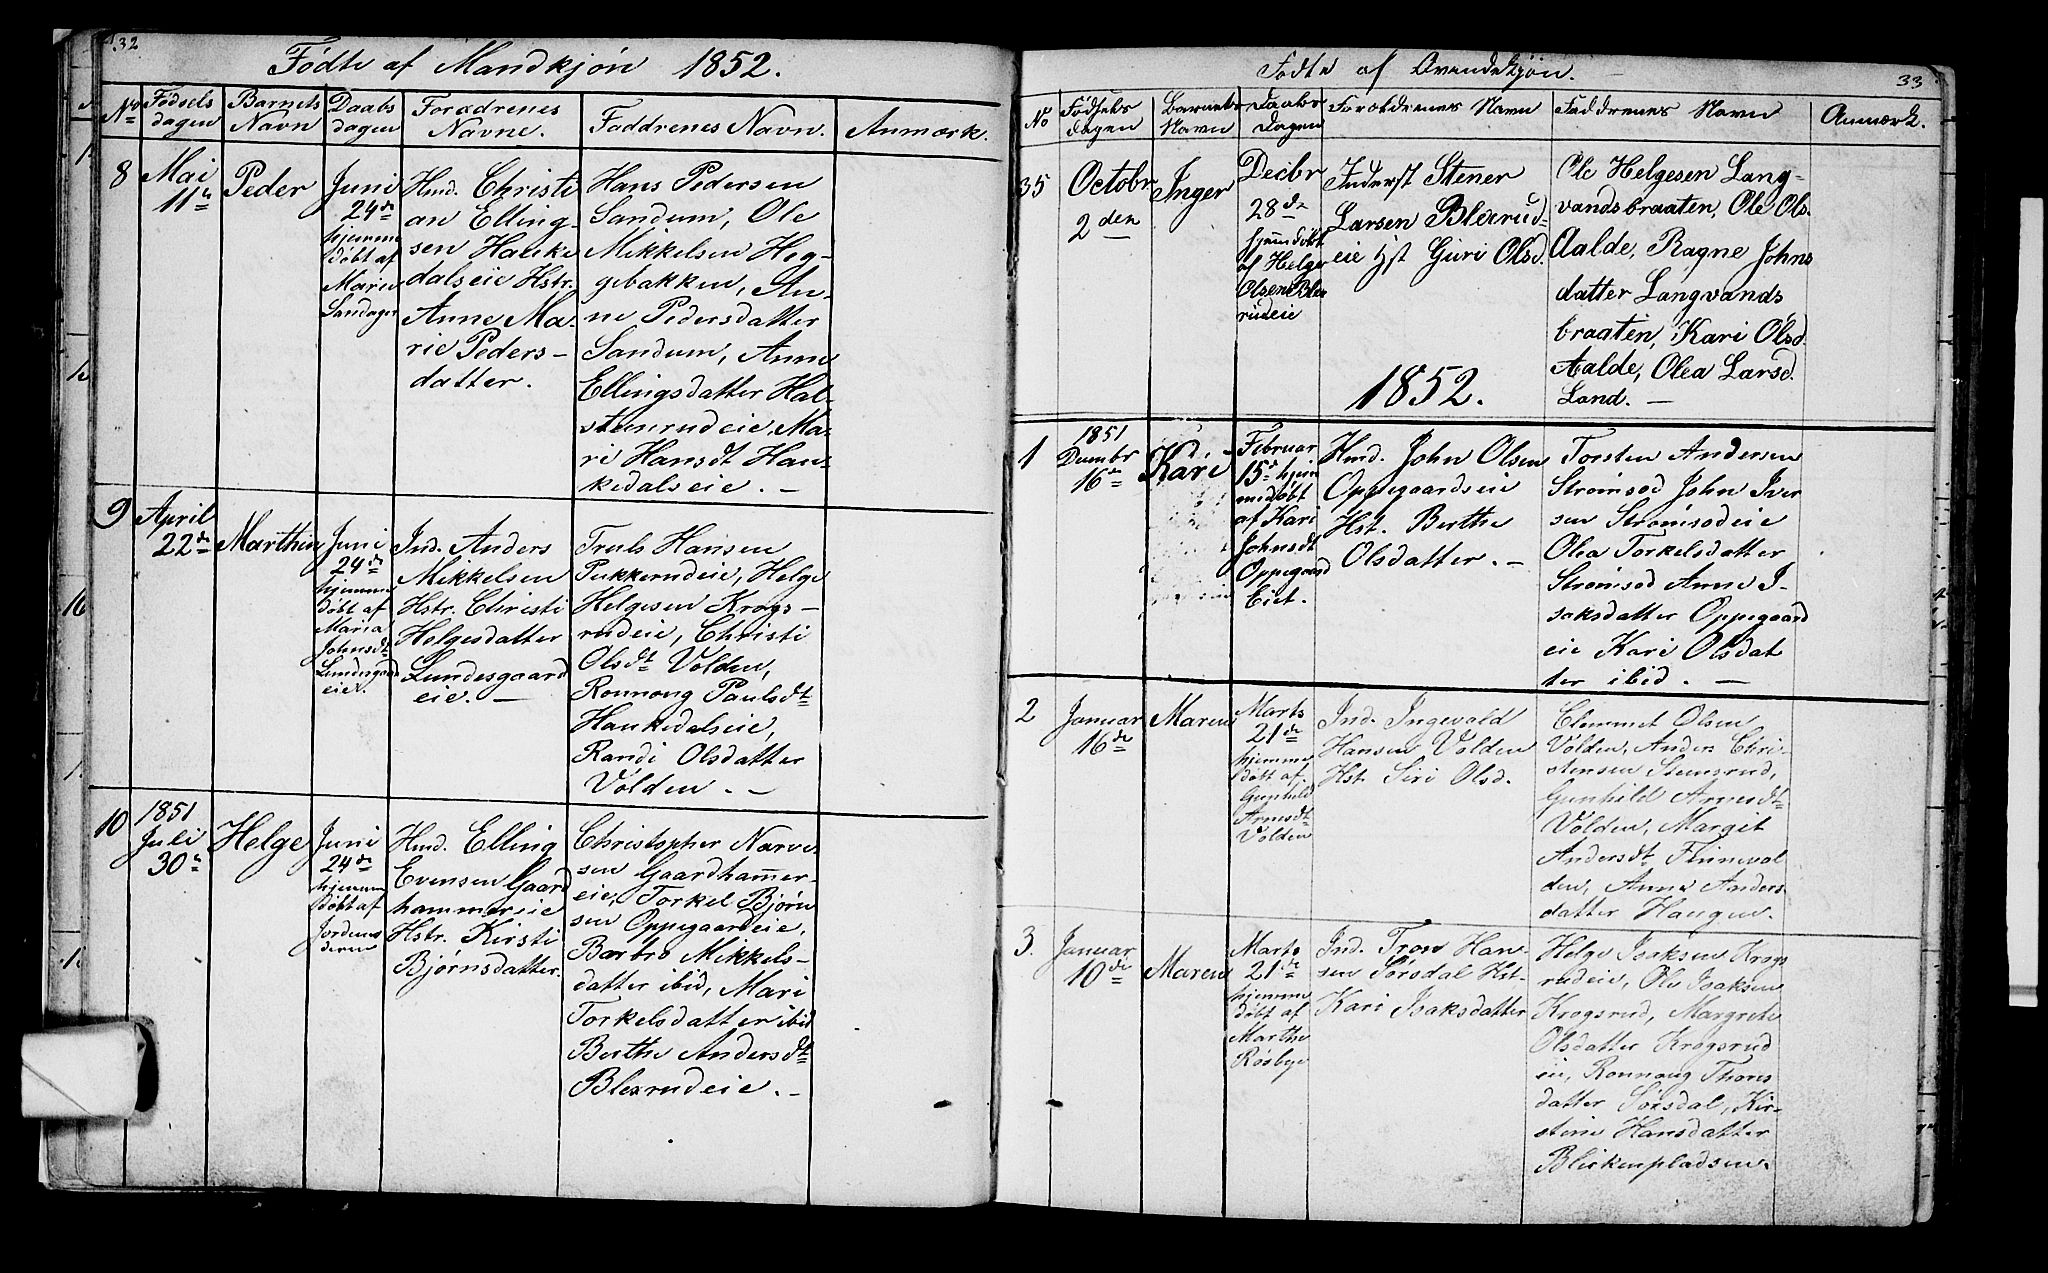 32
Fødte af Mandkjøn 1852.
No
Fødsels
dagen
Barnets
Navn
Daabs
dagen
Forædrenes
Navne.
Faddrenes Navn.
Anmærk.
8
Mai
11te
Peder
Juni
24de
hjemme
døbt af
Maren
Sandager
Hmd. Christi
an Elling-
sen Hauke
dalseie Hstr.
Anne Ma-
rie Peders-
datter.
Hans Pedersen
Sandum, Ole
Mikkelsen Heg-
gebakken, An-
ne Pedersdatter
Sandum, Anne
Ellingsdatter Hal-
steinrudeie, Ma-
ri Hansdt Hau-
kedalseie. -
9
April
22de
Marthin
Juni
24de
hjemme
døbt af
Maria
Johnsdt
Lundesgaard
eie.
Ind. Anders
Mikkelsen
Hstr. Christi
Helgesdatter
Lundesgaard
eie. -
Truls Hansen
Pukkerudeie, Helge
Helgesen Krogs-
rudeie, Christi
Olsdt Volden,
Ronnoug Paulsdt
Haukedalseie,
Randi Olsdatter
Volden. -
10
1851
Juli
30te
Helge
Juni
24de
hjemme
døbt af
Jordemo
deren
Hmd. Elling
Evensen Gaard
hammereie
Hstr. Kirsti
Bjørnsdatter.
Christopher Narve-
sen Gaardhammer-
eie, Torkel Bjørn
sen Oppegaardeie,
Barbro Mikkels-
datter ibid, Mari
Torkelsdatter ibid
Berthe Andersdt
Blexrudeie. -
33
Fødte af Qvindekjøn.
No
Fødsels
dagen
Barnets
Navn
Daabs
Dagen
Forældrenes Navn
Faddrenes Navn
Anmærk.
35
Octobr
2den
Inger
Decbr
28de
hjemdøbt
af Helge
Olsen Blex
rudeie
Inderst Stener
Larsen Blexrud-
eie Hst Guri Olsd.
Ole Helgesen Lang-
vandsbraaten, Ole Ols.
Aalde, Ragne Johns
datter Langvands
braaten, Kari Olsd.
Aalde, Olea Larsd.
Land. -
1852.
1
1851
Decmbr
16de
Kari
Februar
15de hjem
medøbt
af Kari
Johnsdt
Oppegaard
Eiet.
Hmd. John Olsen
Oppegaardseie
Hst. Berthe
Olsdatter. -
Torsten Andersen
Strømsod John Iver
sen Strømsodeie
Olea Torkelsdatter
Strømsod Anne I-
saksdatter Oppegaard
eie Kari Olsdat
ter ibid. -
2
Januar
16de
Maren
Marts
21de
hjemme
døbt af
Gunhild
Arnesdt
Volden
Ind. Ingevald
Hansen Volden
Hst. Siri Olsd.
Clemmet Olsen
Volden, Anders Chri-
stensen Stensrud,
Gunhild Arnesdt
Volden, Margit
Andersdt Finneval
den, Anne Anders
datter Haugen.
3.
Januar
10de
Maren
Marts
21de
hjemme
døbt af
Marthe
Røsbye
Ind. Tron Han-
sen Sørsdal Hst.
Kari Isaksdatter
Helge Isaksen Krogs
rudeie, Ole Isaksen
Krogsrud, Margrethe
Olsdatter Krogsrud
eie, Ronnoug Thores
datter Sørsdal, Kir-
stine Hansdatter
Blekenpladsen.